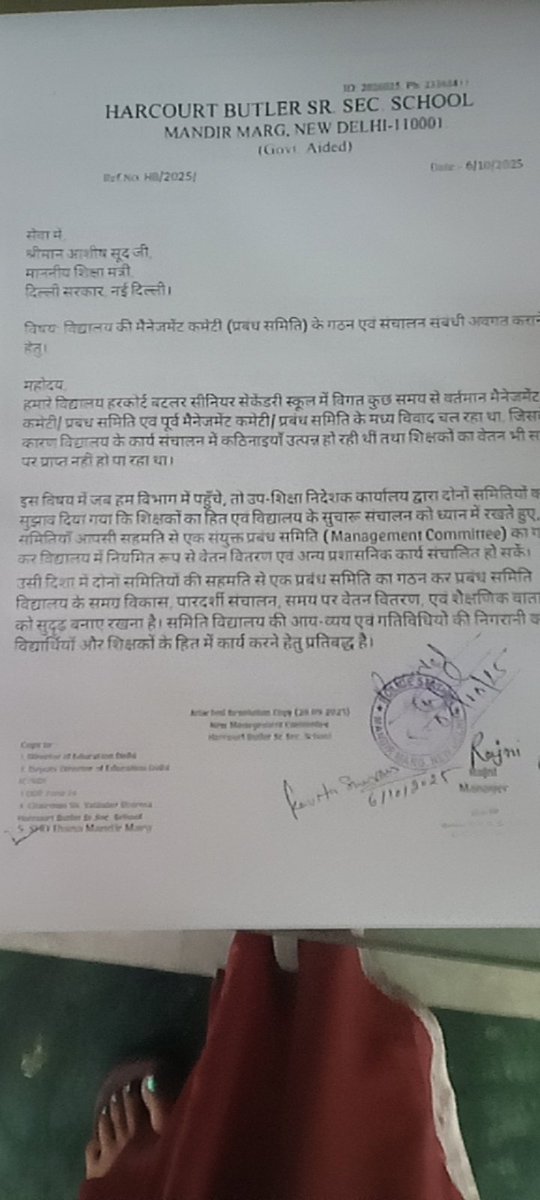 ID: 2026025, Ph:
HARCOURT BUTLER SR. SEC. SCHOOL
MANDIR MARG, NEW DELHI-110001
(Govt. Aided)
Ref.No. HB/2025/
Date:- 6/10/2025
सेवा में,
श्रीमान आशीष सूद जी,
माननीय शिक्षा मंत्री,
दिल्ली सरकार, नई दिल्ली।
विषय: विद्यालय की मैनेजमेंट कमेटी (प्रबंध समिति) के गठन एवं संचालन संबंधी अवगत कराने
हेतु।
महोदय,
हमारे विद्यालय हरकोर्ट बटलर सीनियर सेकेंडरी स्कूल में विगत कुछ समय से वर्तमान मैनेजमेंट
कमेटी/ प्रबंध समिति एवं पूर्व मैनेजमेंट कमेटी/ प्रबंध समिति के मध्य विवाद चल रहा था, जिस
कारण विद्यालय के कार्य संचालन में कठिनाइयाँ उत्पन्न हो रही थीं तथा शिक्षकों का वेतन भी स
पर प्राप्त नहीं हो पा रहा था।
इस विषय में जब हम विभाग में पहुँचे, तो उप-शिक्षा निदेशक कार्यालय द्वारा दोनों समितियों क
सुझाव दिया गया कि शिक्षकों का हित एवं विद्यालय के सुचारू संचालन को ध्यान में रखते हुए,
समितियाँ आपसी सहमति से एक संयुक्त प्रबंध समिति (Management Committee) का ग
कर विद्यालय में नियमित रूप से वेतन वितरण एवं अन्य प्रशासनिक कार्य संचालित हो सकें।
उसी दिशा में दोनों समितियों की सहमति से एक प्रबंध समिति का गठन कर प्रबंध समिति
विद्यालय के समग्र विकास, पारदर्शी संचालन, समय पर वेतन वितरण, एवं शैक्षणिक वाता
को सुदृढ़ बनाए रखना है। समिति विद्यालय की आय-व्यय एवं गतिविधियों की निगरानी क
विद्यार्थियों और शिक्षकों के हित में कार्य करने हेतु प्रतिबद्ध है।
Attached Resolution Copy (28.09.2025)
New Management Committee
Harcourt Butler Sr. Sec. School
Copy to
1. Director of Education Delhi
2. Deputy Director of Education Delhi
4. Chairman Sh.
Harcourt Butler Sr.Sec. School
5. SHO Thana Mandir Marg
MANDIR MARG, NEW
6/10/2025
Rajni
Rajni
Manager